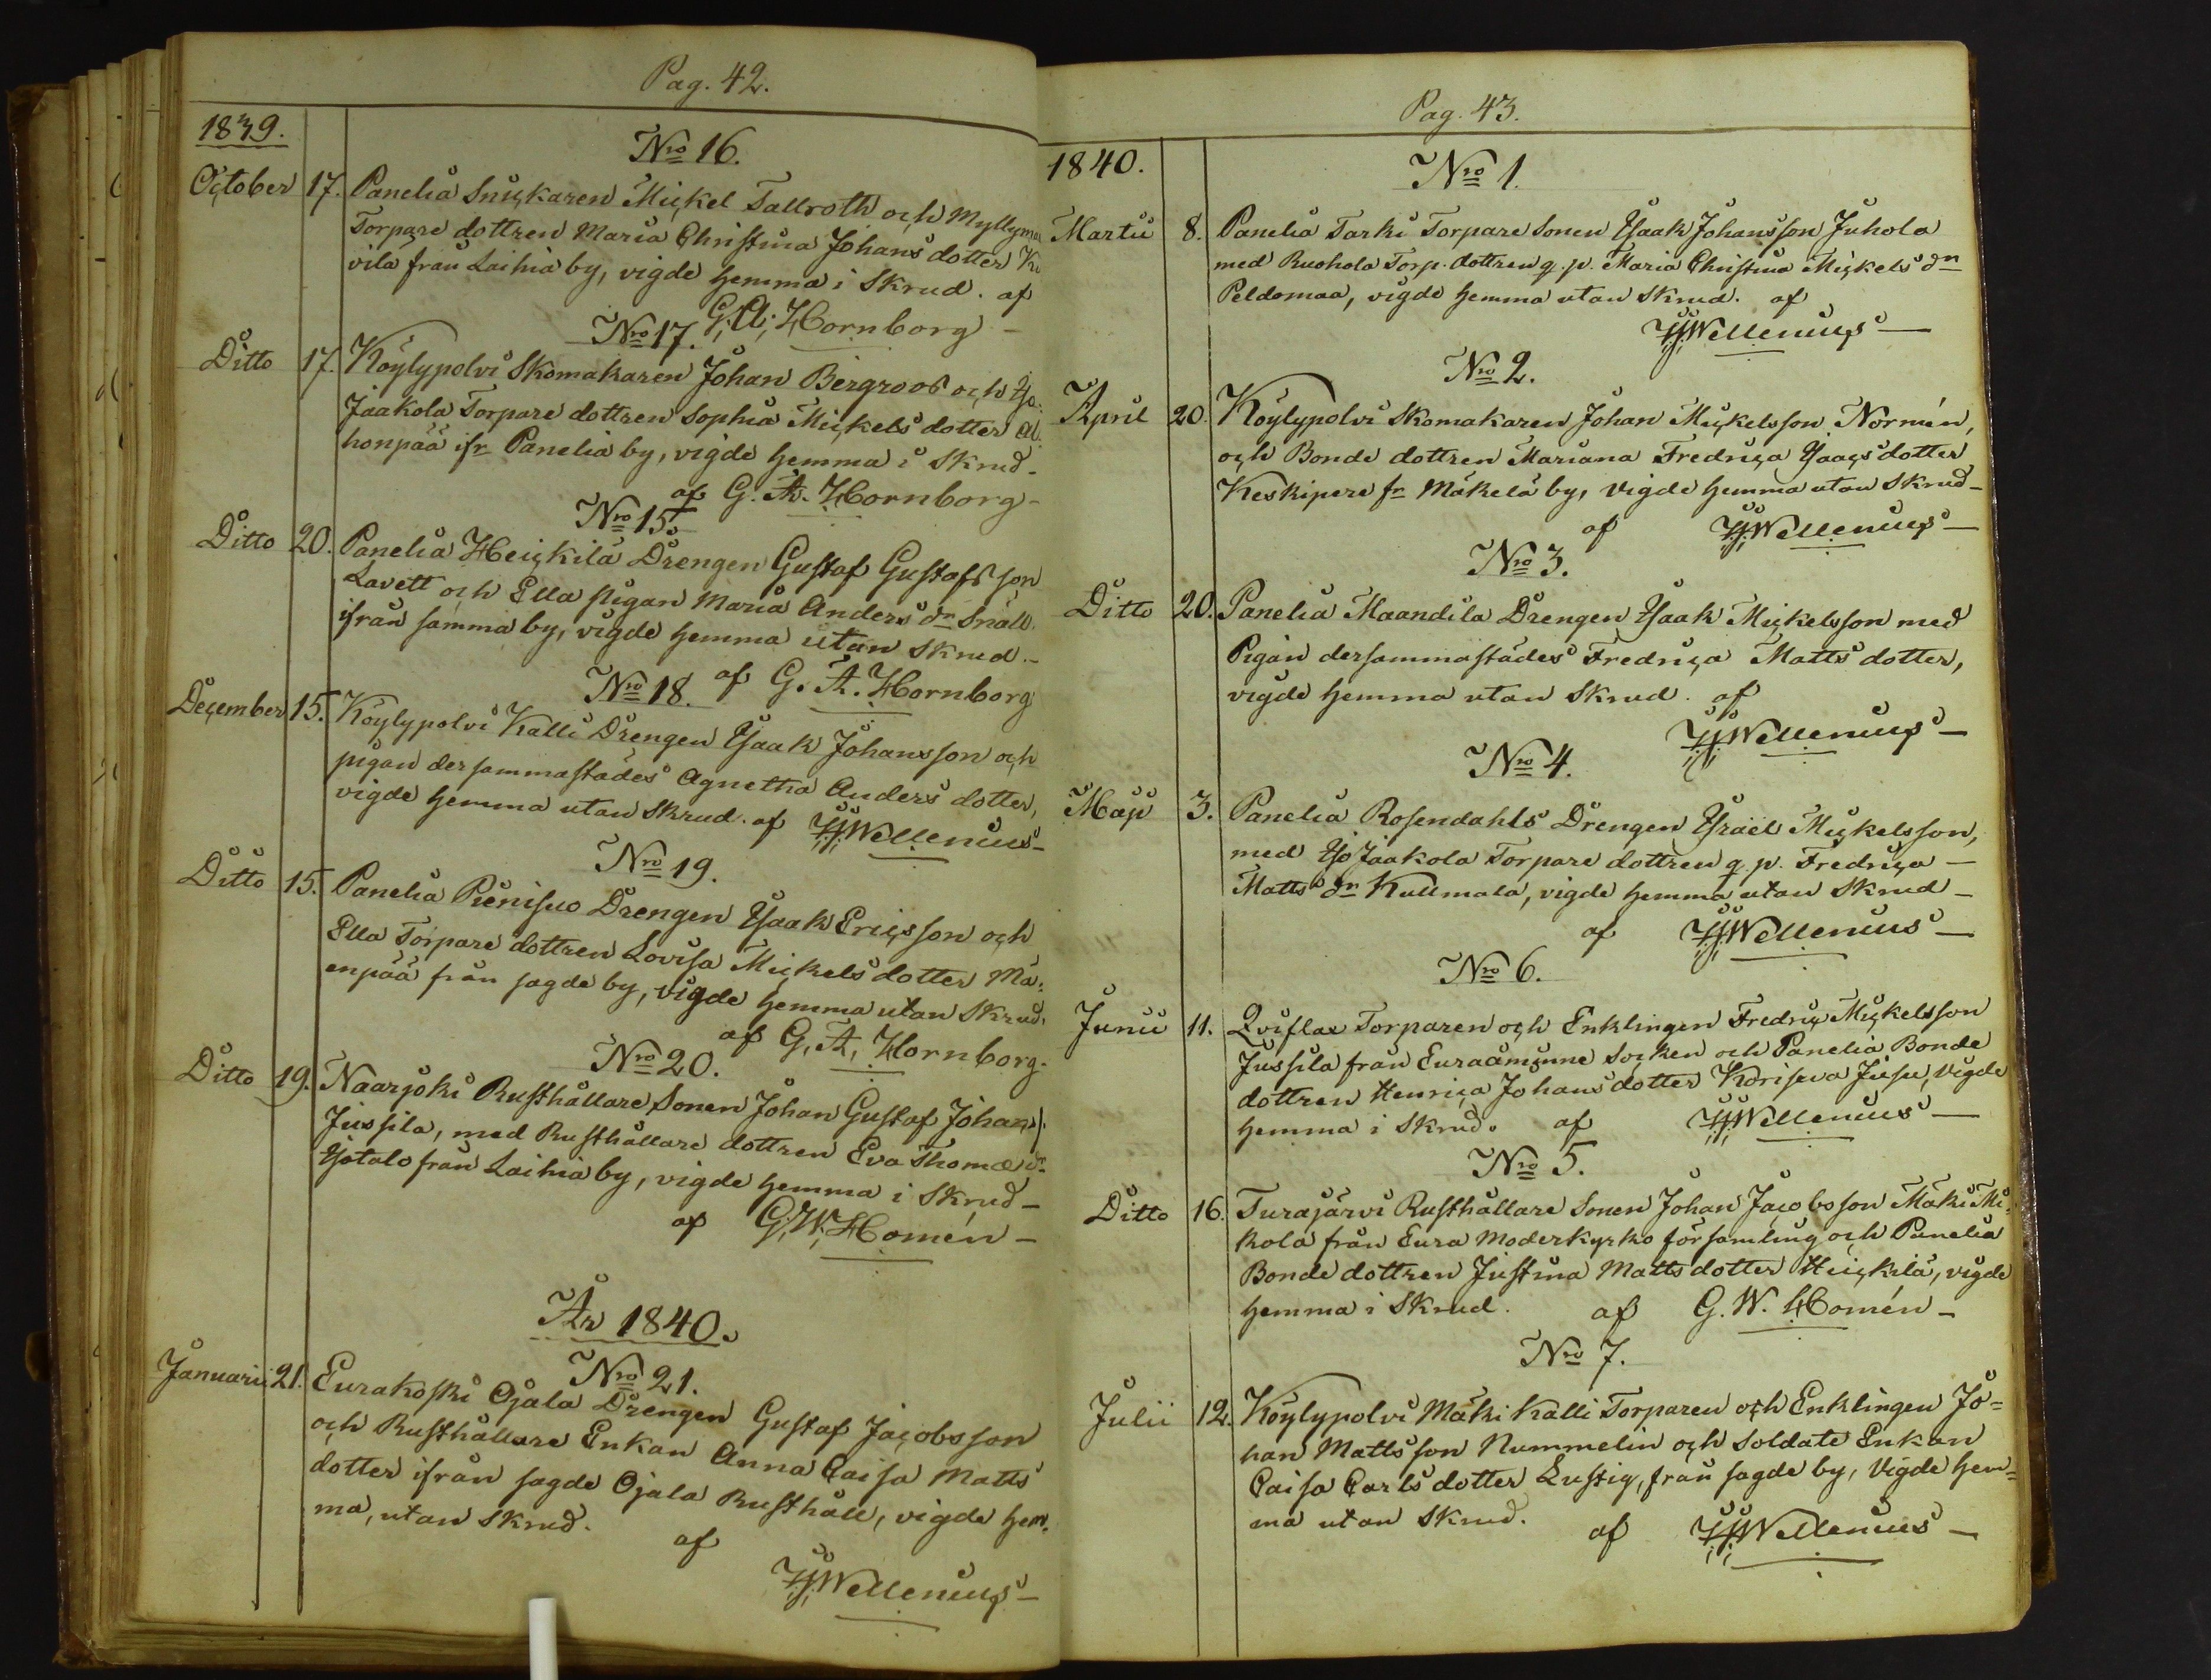 Pag. 42.
1839.
Nro 16.
October 17. Panelia Snickaren Mickel Tallroth och Myllyma
Torpare dottren Maria Christina Johans dotter Ki
vila från Laihia by, vigde hemma i Skrud. af
G. A. Hornborg
Nro 17.
Ditto 17. Köylypolvi Skomakaren Johan Bergroos och Yjo
Jaakola Torpare dottren Sophia Mickels dotter Al
honpää ifr Panelia by, vigde hemma i Skrud.
af G. A. Hornborg
Nro 15.
Ditto 20. Panelia Heickilä Drengen Gustaf Gustafsson
Lavett och Ella pigan Maria Anders dr Snäll
ifrån samma by, vigde hemma utan Skrud.
af G. A. Hornborg
Nro 18.
December 15. Köylypolvi Kalli Drengen Isaak Johansson och
pigan dersammastädes Agnetha Anders dotter,
vigde hemma utan Skrud. af Wellenius
Nro 19.
Ditto 15. Panelia Pienisuo Drengen Isaak Ericsson och
Ella Torpare dottren Lovisa Mickels dotter Mä-
enpää från sagde by, vigde hemma utan Skrud.
af G. A. Hornborg.
Nro 20.
Ditto 19. Naarjoki Rusthållare Sonen Johan Gustaf Johans s.
Jussila, med Rusthållare dottren Eva Thomæ dr
Yjötalo från Laihia by, vigde hemma i Skrud
af G. W. Homén
År 1840.
Nro 21.
Januarii 21. Eurakoski Ojala Drengen Gustaf Jacobsson
och Rusthållare Enkan Anna Caisa Matts
dotter ifrån sagde Ojala Rusthåll, vigde hem-
ma, utan Skrud.
af
Wellenius
Pag. 43.
1840.
Nro 1.
Martii 8. Panelia Tarki Torpare Sonen Isaak Johansson Juhola
med Ruohola Torp. dottren q. p. Maria Christina Mickels dr
Peldomaa, vigde hemma utan Skrud. af
Wellenius
Nro 2.
April 20. Köylypolvi Skomakaren Johan Mickelsson Normén,
och Bonde dottren Mariana Fredrica Isaacs dotter
Keskipere fr Mäkelä by, vigde hemma utan Skrud
af Wellenius
Nro 3.
Ditto 20. Panelia Maandila Drengen Isaak Mickelsson med
Pigan dersammastädes Fredrica Matts dotter,
vigde hemma utan Skrud. af
Wellenius
Nro 4.
Maji 3. Panelia Rosendahls Drengen Israël Mickelsson,
med Yjö Jaakola Torpare dottren q. p. Fredrica
Matts dr Kullmala, vigde hemma utan Skrud
af Wellenius
Nro 6.
Junii 11. Qviflax Torparen och Enklingen Fredric Mickelsson
Jussila från Euraåminne Socken och Panelia Bonde
dottren Henrica Johans dotter Koriseva Jusu, vigde
hemma i Skrud. af Wellenius
Nro 5.
Ditto 16. Turajärvi Rusthållare Sonen Johan Jacobsson Mäki Mi-
kola från Eura Moderkyrko församling och Panelia
Bonde dottren Justina Matts dotter Heickilä, vigde
hemma i Skrud. af G. W. Homén
Nro 7.
Julii 12. Köylypolvi Mäki Kalli Torparen och Enklingen Jo-
han Mattsson Nummelin och Soldate Enkan
Caisa Carls dotter Lustig, från sagde by, vigde hem-
ma utan Skrud. af Wellenius